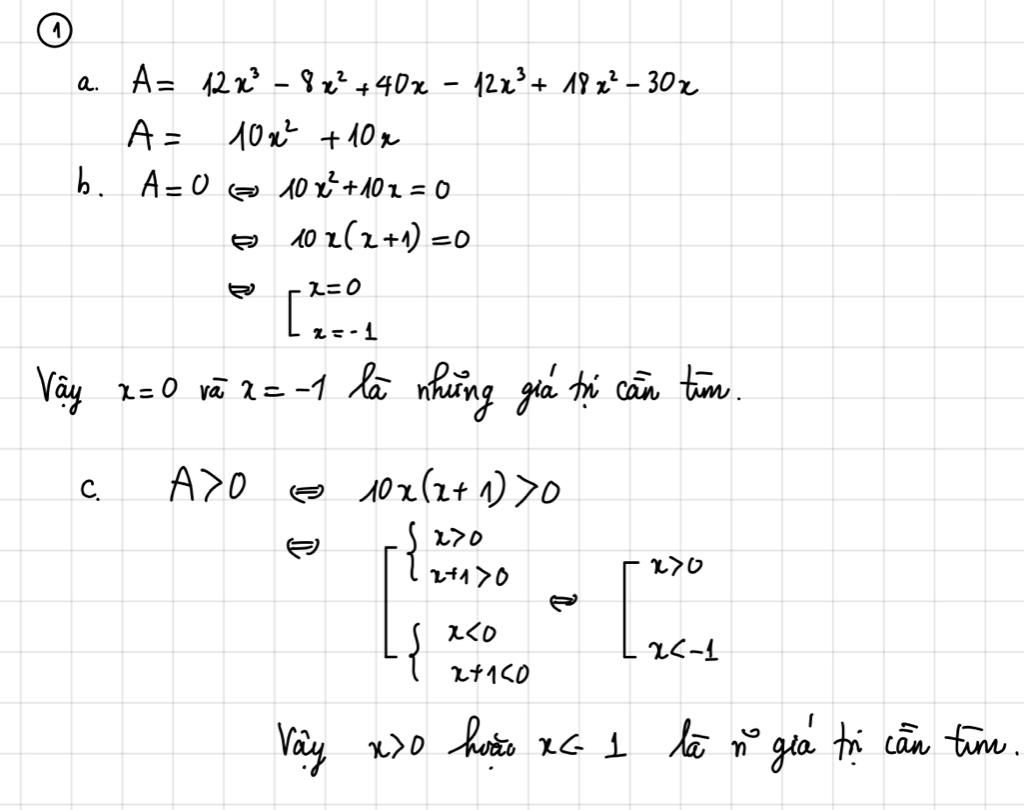 ①
a. A = 12x³ - 8x² + 40x - 12x³ + 18x² - 30x
A = 10x² + 10x
b. A = 0 ⇔ 10x² + 10x = 0
⇔ 10x(x+1) = 0
⇔ [ x = 0
x = -1
Vậy x = 0 và x = -1 là những giá trị cần tìm.
c. A > 0 ⇔ 10x(x+1) > 0
⇔ [ { x > 0
x+1 > 0
{ x < 0
x+1 < 0
⇔ [ x > 0
x < -1
Vậy x > 0 hoặc x < -1 là n~ giá trị cần tìm.